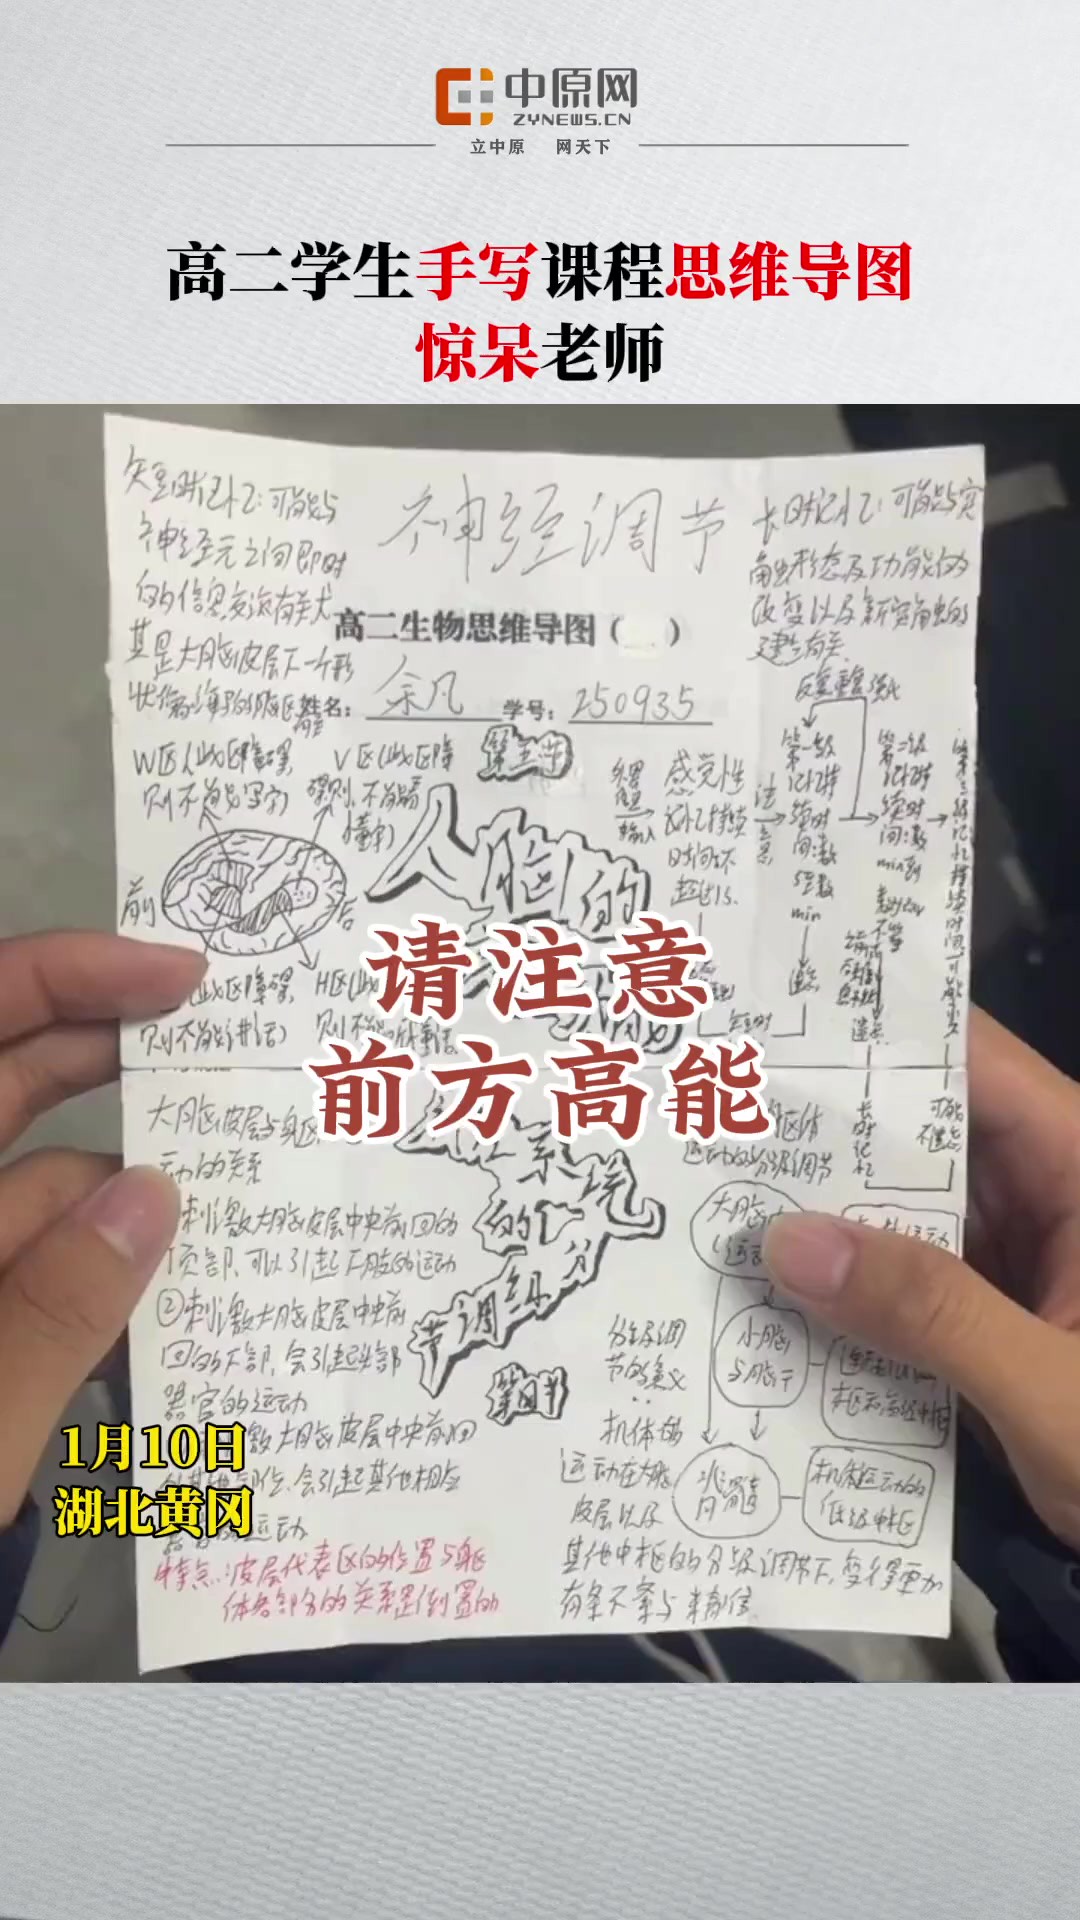 中原网
ZYNEWS.CN
立中原 网天下
高二学生手写课程思维导图
惊呆老师
短时记忆:可能与
神经元之间即时
的信息交流有关尤
其是大脑皮层下一个形
状像海马的脑区有关
神经调节
长时记忆:可能与突
触形态及功能的
改变以及新突触的
建立有关
高二生物思维导图( )
姓名:余凡 学号:250935
W区(此区障碍,
则不能写字)
V区(此区障
碍则不能看
懂字)
前
后
区(此区障碍,
则不能讲话)
H区(此区
则不能听懂话
第五节
人脑的
外界信息输入
感觉性
记忆持续
时间不
超过1s.
注意
反复重复强化
第一级
记忆持
续时
间:数
s至数
min
遗忘
第二级
记忆持
续时
间:数
min到
遗忘
长时记忆
可能不遗忘
请注意
前方高能
大脑皮层与躯
动的关系
刺激大脑皮层中央前回的
顶部、可以引起下肢的运动
②刺激大脑皮层中央前
回的下部,会引起头部
器官的运动
激大脑皮层中央前回
的其他部位,会引起其他相应
运动
特点:皮层代表区的位置与躯
体各部分的关系是倒置的
神经系统
的
分级调节
第四节
躯体
运动的分级调节
大脑皮
(运动
小脑
与脑干
脊髓
机体运动的
低级中枢
分级调
节的意义
机体的
运动在大脑
皮层以及
其他中枢的分级调节下,变得更加
有条不紊与精准
1月10日
湖北黄冈